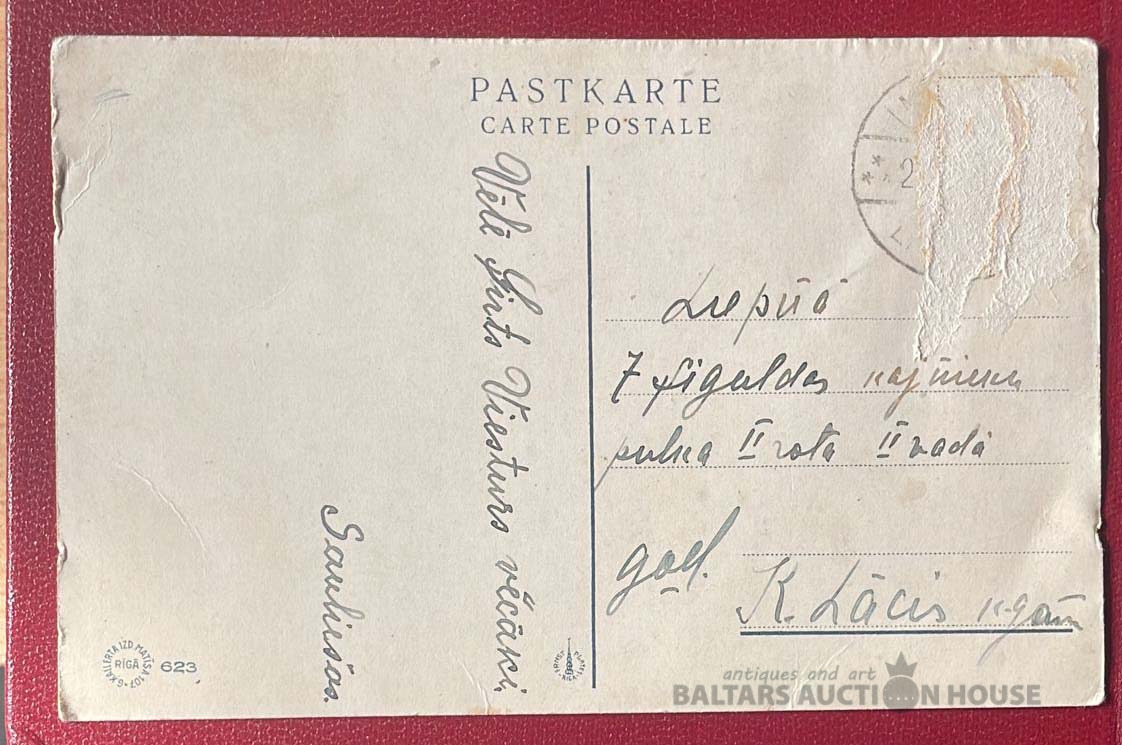 PASTKARTE
CARTE POSTALE
Vēlē Ģirts Viesturs vēcāki.
2
Liepūā
7 Siguldas kajnieku
pulka II rota II vadā
god.
K. Lācis k-gam
G. KALLERTA IZD. MATISA 107
RĪGĀ
623
antiques and art
BALTARS AUCTION HOUSE